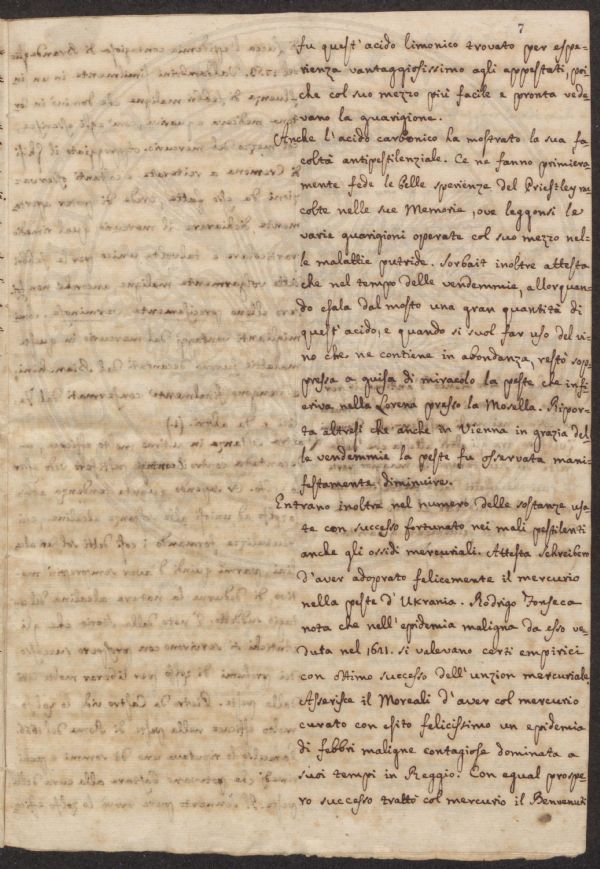 7
fu quest'acido limonico trovato per espe-
rienza vantaggiosissimo agli appestati, poi-
che col suo mezzo più facile e pronta vede-
vano la guarigione.
Anche l'acido carbonico ha mostrato la sua fa-
coltà antipestilenziale. Ce ne fanno primiera-
mente fede le belle sperienze del Priestley rac-
colte nelle sue Memorie, ove leggonsi le
varie guarigioni operate col suo mezzo nel-
le malattie putride. Sorbait inoltre attesta
che nel tempo delle vendemmie, allorquan-
do esala dal mosto una gran quantità di
quest'acido, e quando si suol far uso del vi-
no che ne contiene in abondanza, restò sop-
pressa a guisa di miracolo la peste che infi-
eriva nella Lorena presso la Mosella. Ripor-
ta altresì che anche in Vienna in grazia del-
le vendemmie la peste fu osservata mani-
festamente diminuire.
Entrano inoltre nel numero delle sostanze usa-
te con successo fortunato nei mali pestilenti
anche gli ossidi mercuriali. Attesta Schreibero
d'aver adoprato felicemente il mercurio
nella peste d'Ukrania. Rodrigo Fonseca
nota che nell'epidemia maligna da esso ve-
duta nel 1621. si valevano certi empirici
con ottimo successo dell'unzion mercuriale.
Asserisce il Moreali d'aver col mercurio
curato con esito felicissimo un epidemia
di febbri maligne contagiose dominata a
suoi tempi in Reggio. Con egual prospe-
ro successo trattò col mercurio il Benvenuti